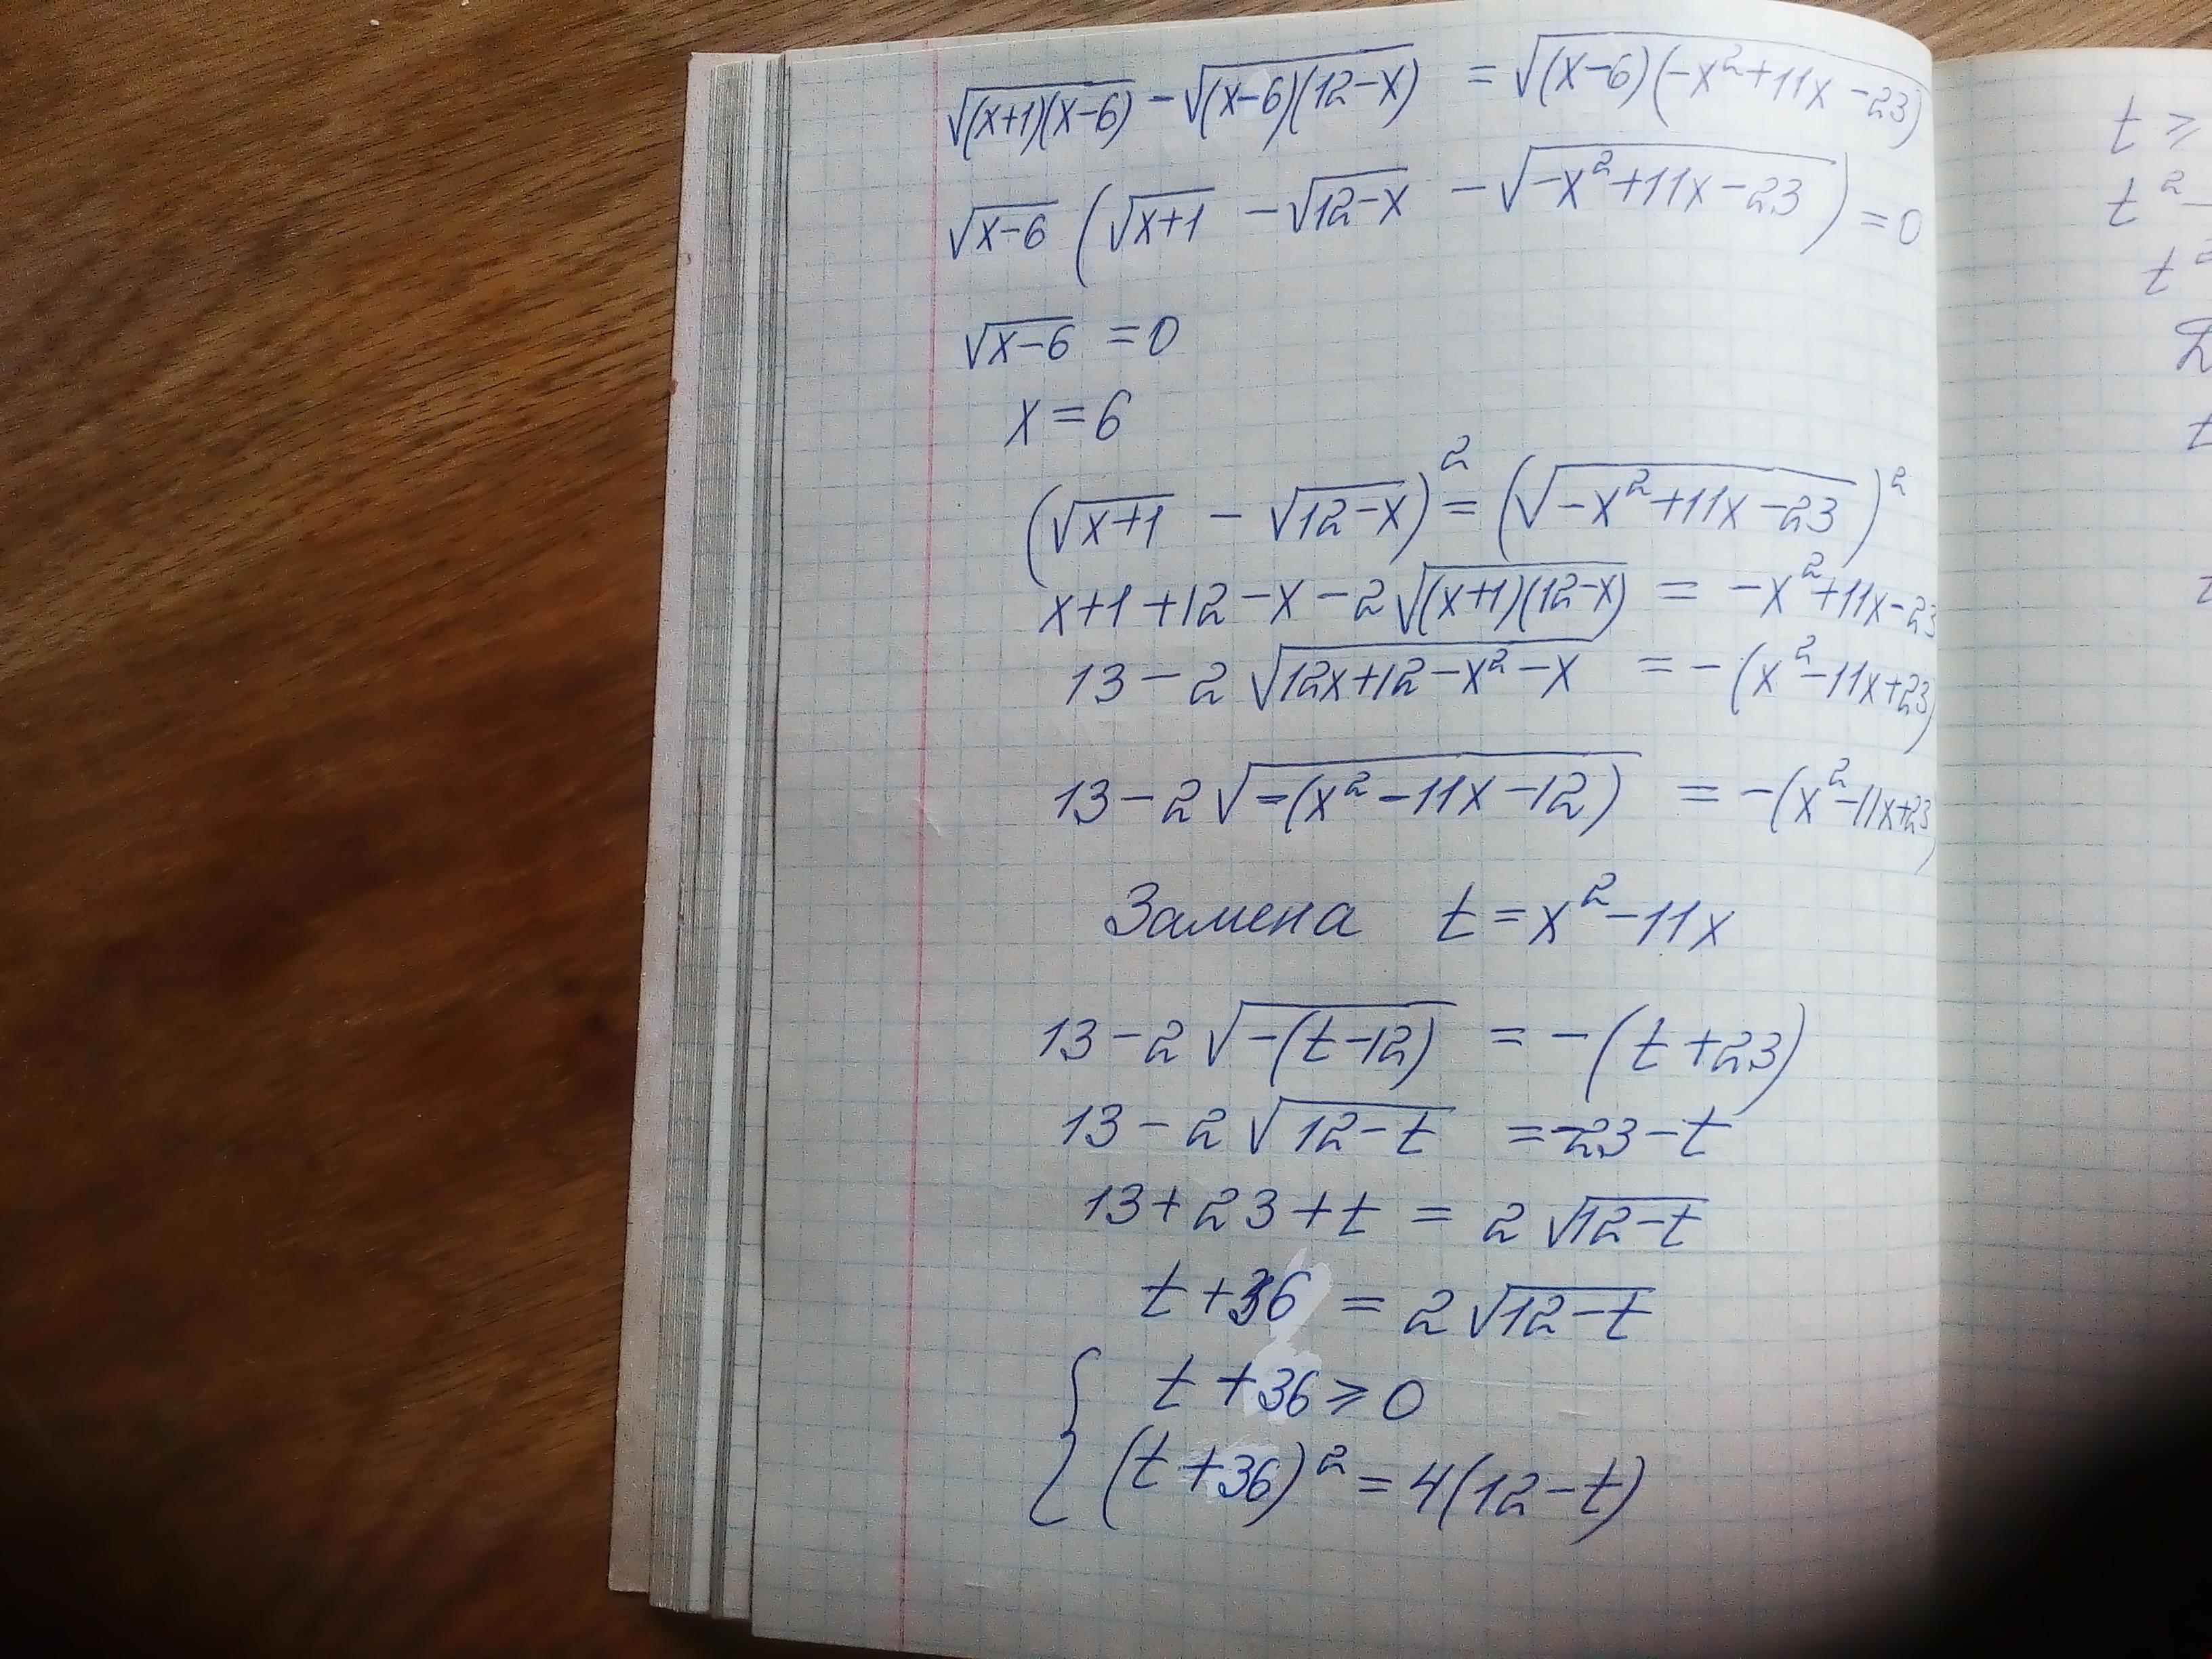 √(x+1)(x-6) - √(x-6)(12-x) = √(x-6)(-x²+11x-23)
√x-6 (√x+1 - √12-x - √-x²+11x-23) = 0
√x-6 = 0
x = 6
(√x+1 - √12-x)² = (√-x²+11x-23)²
x+1+12-x-2√(x+1)(12-x) = -x²+11x-23
13-2√12x+12-x²-x = -(x²-11x+23)
13-2√-(x²-11x-12) = -(x²-11x+23)
Замена t = x²-11x
13-2√-(t-12) = -(t+23)
13-2√12-t = -23-t
13+23+t = 2√12-t
t+36 = 2√12-t
{ t+36 ⩾ 0
(t+36)² = 4(12-t)
t ⩾
t² -
t²
t